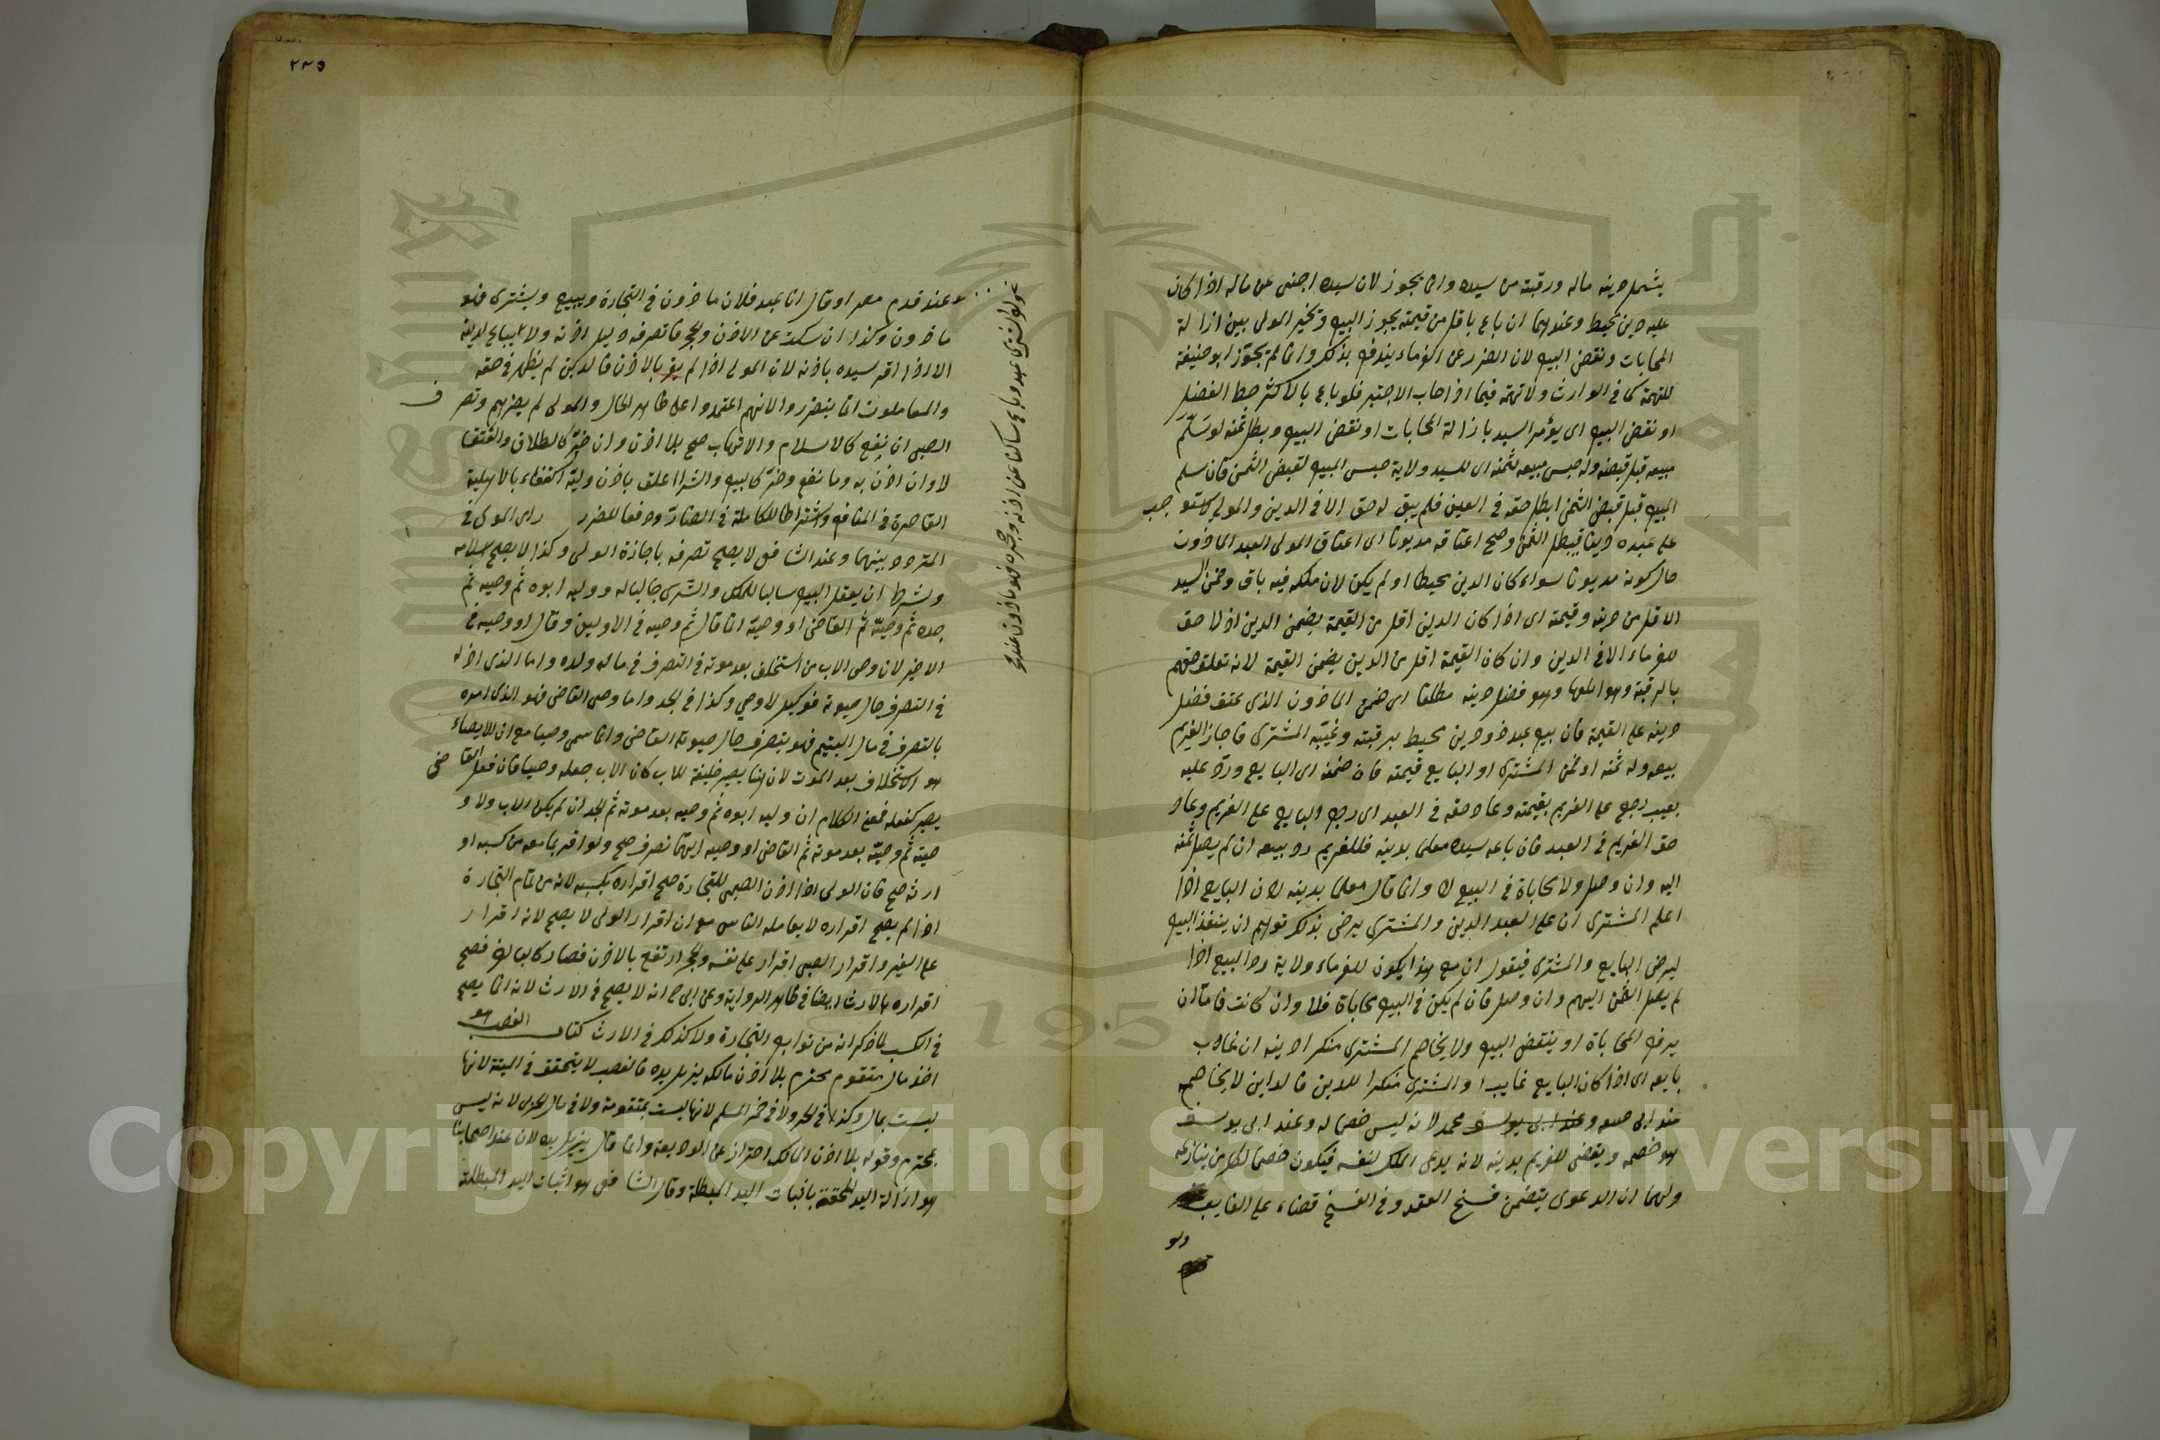 يشمل دينه ماله ورقبته من سيده وان يجوز لان سيده اجنبى عن ماله اذا كان
عليه دين محيط وعندهما ان باع باقل من قيمته يجوز البيع وتخير المولى بين ازالة
المحابات ونقض البيع لان الضرر عن الغرماء يندفع بذلك وانما لم يجوز ابو حنيفة
للتهمة كما فى الوارث ولا تهمة فيما اذا حابى الاجنبى فلو باع بالاكثر حط الفضل
او نقض البيع اى يؤمر السيد بازالة المحابات او نقض البيع وبطل ثمنه لو سلم
مبيعه قبل قبضه وله حبس مبيعه بثمنه اى للسيد ولاية حبس المبيع لقبض الثمن فان سلم
المبيع قبل قبض الثمن ابطل حقه فى العين فلم يبق له حق الا فى الدين والمولى لا يستوجب
على عبده دينا فيبطل الثمن وصح اعتاقه مديونا اى اعتاق المولى العبد الماذون
حال كونه مديونا سواء كان الدين محيطا او لم يكن لان ملكه فيه باق وضمن السيد
الاقل من دينه وقيمته اى اذا كان الدين اقل من القيمة يضمن الدين اذ لا حق
للغرماء الا فى الدين وان كان القيمة اقل من الدين يضمن القيمة لانه تعلق حقهم
بالرقبة وهو اتلفها وهو فضل دينه مطلقا اى ضمن الماذون الذى عتق فضل
دينه على القيمة فان بيع عبد ذو دين محيط برقبته وغيبه المشترى فاجاز الغريم
بيعه وله ثمنه او ضمن المشترى او البايع قيمته فان ضمنه اى البايع ورد عليه
بعيب رجع على الغريم بقيمته وعاد حقه فى العبد اى رجع البايع على الغريم وعاد
حق الغريم فى العبد فان باعه سيده معلما بدينه فللغريم رد بيعه ان لم يصل ثمنه
اليه وان وصل ولا محاباة فى البيع لا وانما قال معلما بدينه لان البايع اذا
اعلم المشترى ان على العبد الدين والمشترى يرضى بذلك توهم ان ينفذ البيع
ليرضى البايع والمشترى فيقول ان مع هذا يكون للغرماء ولاية رد البيع اذا
لم يصل الثمن اليهم وان وصل فان لم يكن فى البيع محاباة فلا وان كانت فاما ان
يرفع المحاباة او ينتقض البيع ولا يخاصم المشترى منكرا دينه ان غاب
بايعه اى اذا كان البايع غايبا والمشترى منكرا للدين فالداين لا يخاصمه
عند ابى حنيفة ومحمد لانه ليس خصما له وعند ابى يوسف
هو خصمه ويقضى للغريم بدينه لانه يدعى الملك لنفسه فيكون خصما لكل من ينازعه
ولهما ان الدعوى يتضمن فسخ العقد وفى الفسخ قضاء على الغايب
ولو
٢٣٥
عبد قدم مصر او قال انا عبد فلان ماذون فى التجارة ويبيع ويشترى فهو
ماذون وكذا ان سكت عن الاذن والحجر فاتصرفه دليل اذنه ولا يباع لدينه
الا اذا اقر سيده باذنه لان المولى اذا لم يقر بالاذن فالدين لم يظهر فى حقه
والمعاملون انما يتضرروا لانهم اعتمدوا على ظاهر الحال والمولى لم يضرهم وتصرف
الصبى ان نفع كالاسلام والاتهاب صح بلا اذن وان ضر كالطلاق والعتاق
لا وان اذن به وما نفع وضر كالبيع والشراء علق باذن وليه اكتفاء بالاهلية
القاصرة فى المنافع واشتراطا للكاملة فى المضار ودفعا للضرر راى المولى فى
المتردد بينهما وعند الشافعى لا يصح تصرفه باجازة الولى وكذا لا يصح اسلامه
وشرط ان يعقل البيع سالبا للملك والشرى جالبا له ووليه ابوه ثم وصيه ثم
جده ثم وصيه ثم القاضى او وصيه انما قال ثم وصيه فى الاولين وقال او وصيه فى
الاخير لان وصى الاب من استخلف بعد موته فى التصرف فى مال ولده واما الذى اذن له
فى التصرف حال حيوته فوكيل لا وصى وكذا فى الجد واما وصى القاضى فهو الذى امره
بالتصرف فى مال اليتيم فهو يتصرف حال حيوة القاضى وانما سمى وصيا مع ان الايصاء
هو الاستخلاف بعد الموت لان هنا يصير خليفة للاب كان الاب جعله وصيا فان فعل القاضى
يصير كفعله فمعنى الكلام ان وليه ابوه ثم وصيه بعد موته ثم الجد ان لم يكن الاب ولا و
صيه ثم وصيه بعد موته ثم القاضى او وصيه ايهما تصرف صح ولو اقر بما معه من كسبه او
ارثه صح فان الولى اذا اذن الصبى للتجارة صح اقراره بكسبه لانه من تمام التجارة
اذا لم يصح اقراره لا يعامله الناس مع ان اقرار الولى لا يصح لانه اقرار
على الغير واقرار الصبى اقرار على نفسه والحجر ارتفع بالاذن فصار كالبالغ فصح
اقراره بالارث ايضا فى ظاهر الرواية وعن ابى ح انه لا يصح فى الارث لانه انما يصح
فى الكسب لما ذكر انه من توابع التجارة ولا كذلك فى الارث كتاب الغصب هو
اخذ مال متقوم محترم بلا اذن مالكه يزيل يده فالغصب لا يتحقق فى الميتة لانها
ليست بمال وكذا فى الحر ولا فى خمر المسلم لانها ليست بمتقومة ولا فى مال الحربى لانه ليس
بمحترم وقوله بلا اذن المالك احتراز عن الوديعة وانما قال يزيل يده لان عند اصحابنا
هو ازالة اليد المحقة باثبات اليد المبطلة وقال الشافعى هو اثبات اليد المبطلة
فهو اشترى عبد وباع ساكتا عن اذنه وحجره فهو ماذون عندى
Copyright © King Saud University
1957